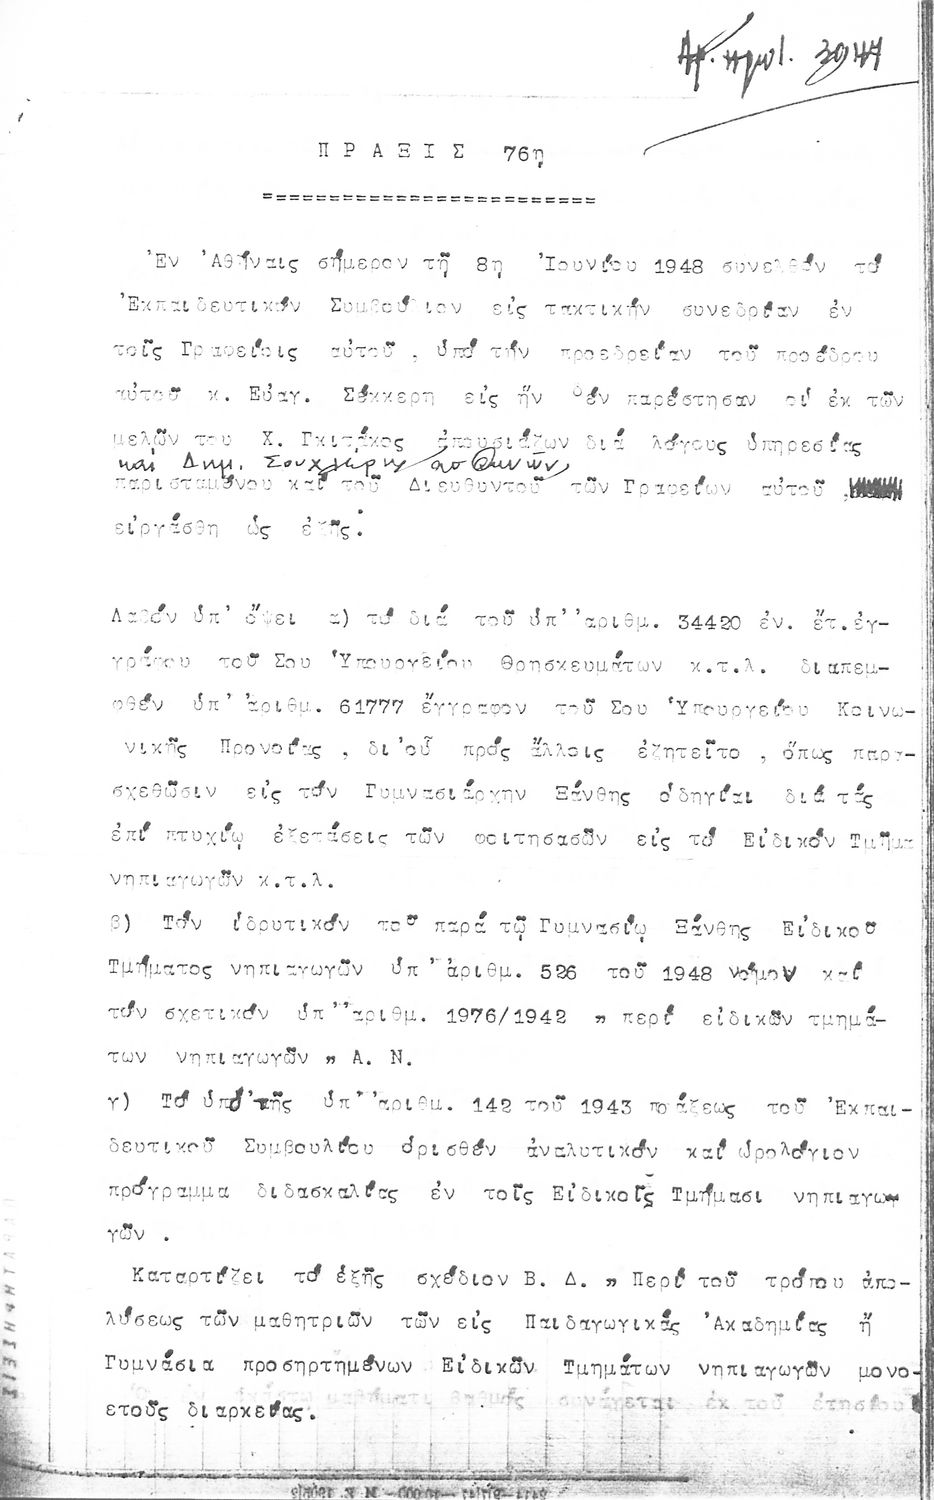 Αρ. πρωτ. 3947
ΠΡΑΞΙΣ 76η
=========================
Ἐν Ἀθήναις σήμερον τῇ 8η Ἰουνίου 1948 συνελθόν τό
Ἐκπαιδευτικόν Συμβούλιον εἰς τακτικήν συνεδρίαν ἐν
τοῖς Γραφείοις αὐτοῦ , ὑπό τήν προεδρείαν τοῦ προέδρου
αὐτοῦ κ. Εὐαγ. Σέκκερη εἰς ἥν δέν παρέστησαν οἱ ἐκ τῶν
μελῶν του Χ. Γκιτάκος ἀπουσιάζων διά λόγους ὑπηρεσίας
καί Δημ. Σουχλέρης ασθενῶν
παρισταμένου καί τοῦ Διευθυντοῦ τῶν Γραφείων αὐτοῦ ,
εἰργάσθη ὡς ἑξῆς:
Λαβόν ὑπ' ὄψει α) τό διά τοῦ ὑπ' ἀριθμ. 34420 ἐν. ἔτ.ἐγ-
γράφου τοῦ Σου Ὑπουργείου Θρησκευμάτων κ.τ.λ. διαπεμ-
φθέν ὑπ' ἀριθμ. 61777 ἔγγραφον τοῦ Σου Ὑπουργείου Κοινω-
νικῆς Προνοίας , δι'οὗ πρός ἄλλοις ἐζητεῖτο , ὅπως παρα-
σχεθῶσιν εἰς τόν Γυμνασιάρχην Ξάνθης ὁδηγίαι διά τάς
ἐπί πτυχίῳ ἐξετάσεις τῶν φοιτησασῶν εἰς τό Εἰδικόν Τμῆμα
νηπιαγωγῶν κ.τ.λ.
β) Τόν ἱδρυτικόν τοῦ παρά τῷ Γυμνασίῳ Ξάνθης Εἰδικοῦ
Τμήματος νηπιαγωγῶν ὑπ' ἀριθμ. 526 τοῦ 1948 νόμον καί
τόν σχετικόν ὑπ' ἀριθμ. 1976/1942 „ περί εἰδικῶν τμημά-
των νηπιαγωγῶν „ Α. Ν.
γ) Τό ὑπό τῆς ὑπ' ἀριθμ. 142 τοῦ 1943 πράξεως τοῦ Ἐκπαι-
δευτικοῦ Συμβουλίου ὁρισθέν ἀναλυτικόν καί ὡρολόγιον
πρόγραμμα διδασκαλίας ἐν τοῖς Εἰδικοῖς Τμήμασι νηπιαγω-
γῶν .
Καταρτίζει τό ἑξῆς σχέδιον Β. Δ. „ Περί τοῦ τρόπου ἀπο-
λύσεως τῶν μαθητριῶν τῶν εἰς Παιδαγωγικάς Ἀκαδημίας ἤ
Γυμνάσια προσηρτημένων Εἰδικῶν Τμημάτων νηπιαγωγῶν μονο-
ετοῦς διαρκείας.
μαθήματι βαθμός συνάγεται ἐκ τοῦ ἐτησίου